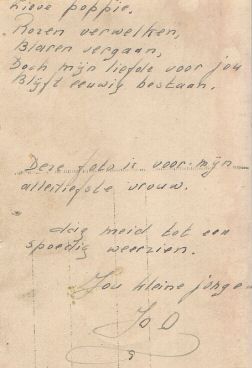 Lieve poppie.
Rozen verwelken,
Blaren vergaan,
Doch mijn liefde voor jou
Blijft eeuwig bestaan.
Deze foto is voor mijn
allerliefste vrouw.
dag meid tot een
spoedig weerzien.
Jou kleine jonge
Jo